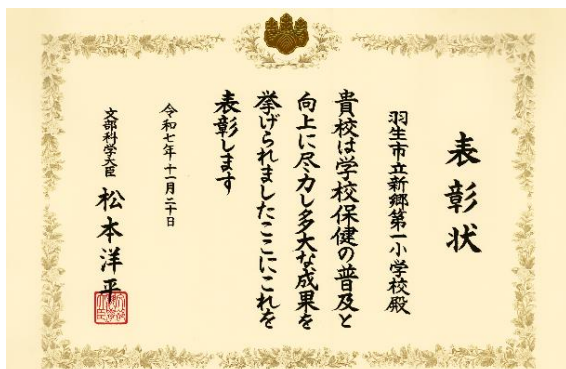 表彰状
羽生市立新郷第一小学校殿
貴校は学校保健の普及と
向上に尽力し多大な成果を
挙げられましたここにこれを
表彰します
令和七年十一月二十日
文部科学大臣 松本洋平